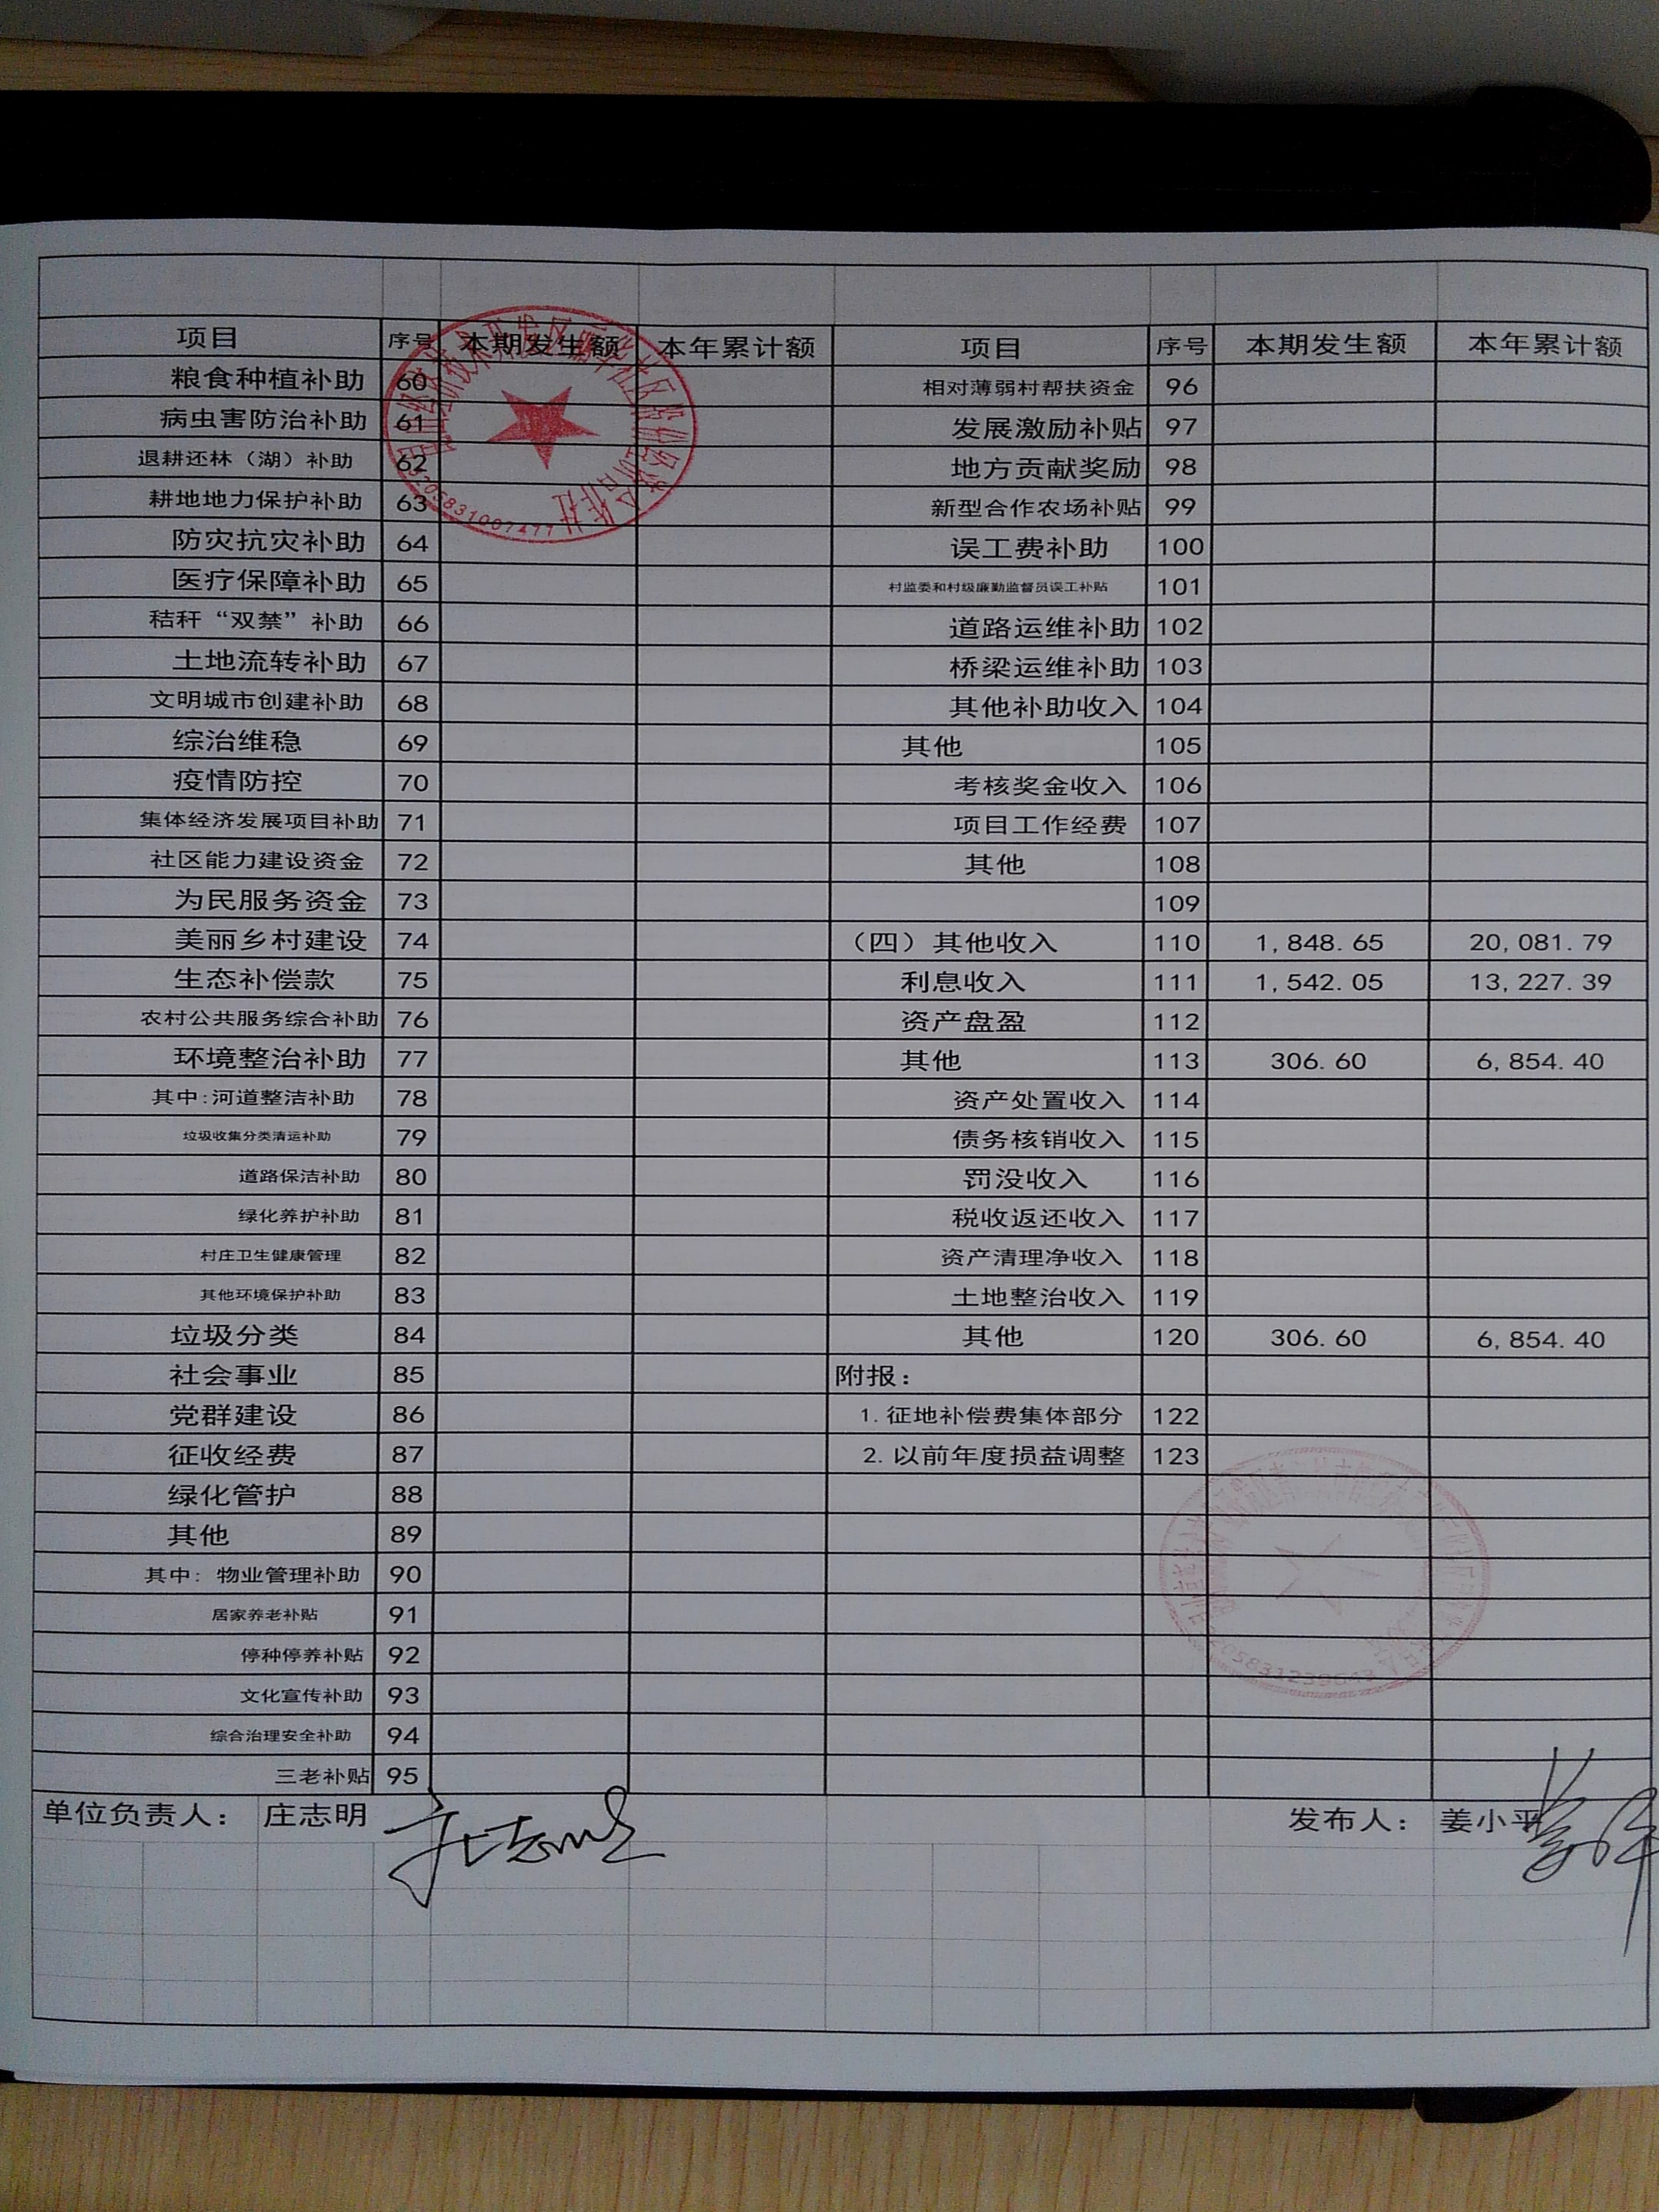 项目 序号 本期发生额 本年累计额 项目 序号 本期发生额 本年累计额
粮食种植补助 60 相对薄弱村帮扶资金 96
病虫害防治补助 61 发展激励补贴 97
退耕还林（湖）补助 62 地方贡献奖励 98
耕地地力保护补助 63 新型合作农场补贴 99
防灾抗灾补助 64 误工费补助 100
医疗保障补助 65 村监委和村级廉勤监督员误工补贴 101
秸秆“双禁”补助 66 道路运维补助 102
土地流转补助 67 桥梁运维补助 103
文明城市创建补助 68 其他补助收入 104
综治维稳 69 其他 105
疫情防控 70 考核奖金收入 106
集体经济发展项目补助 71 项目工作经费 107
社区能力建设资金 72 其他 108
为民服务资金 73 109
美丽乡村建设 74 （四）其他收入 110 1,848.65 20,081.79
生态补偿款 75 利息收入 111 1,542.05 13,227.39
农村公共服务综合补助 76 资产盘盈 112
环境整治补助 77 其他 113 306.60 6,854.40
其中:河道整洁补助 78 资产处置收入 114
垃圾收集分类清运补助 79 债务核销收入 115
道路保洁补助 80 罚没收入 116
绿化养护补助 81 税收返还收入 117
村庄卫生健康管理 82 资产清理净收入 118
其他环境保护补助 83 土地整治收入 119
垃圾分类 84 其他 120 306.60 6,854.40
社会事业 85 附报：
党群建设 86 1.征地补偿费集体部分 122
征收经费 87 2.以前年度损益调整 123
绿化管护 88
其他 89
其中：物业管理补助 90
居家养老补贴 91
停种停养补贴 92
文化宣传补助 93
综合治理安全补助 94
三老补贴 95
单位负责人： 庄志明 庄志明 发布人： 姜小平
3205831007477